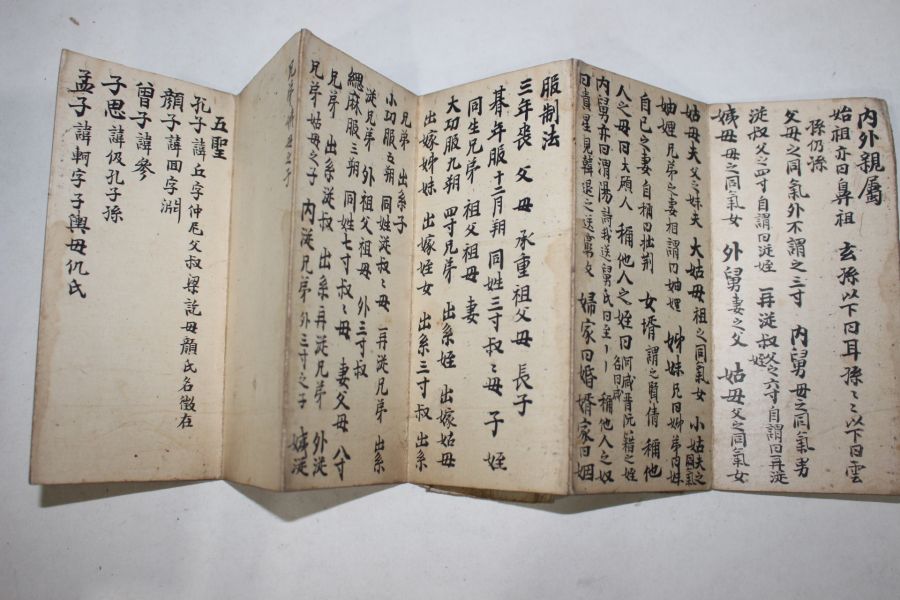 內外親屬
始祖亦曰鼻祖 玄孫以下曰耳孫〻〻以下曰雲
孫仍孫
父母之同氣外不謂之三寸 內舅母之同氣男
從叔父之四寸自謂曰從姪 再從叔父之六寸自謂曰再從
姪
姨母母之同氣女 外舅妻之父 姑母父之同氣女
姑母夫父之妹夫 大姑母祖之同氣女 小姑夫之
妯娌兄弟之妻相謂曰妯娌 姊妹兄曰姊弟曰妹
自己之妻自稱曰拙荊 女壻謂之贅倩 稱他
人之母曰大夫人 稱他人之姪曰阿咸晋阮籍之姪
名曰咸
內舅亦曰渭陽詩我送舅氏曰至〻〻 稱他人之奴
婦家曰婚壻家曰姻
服制法
三年喪 父母 承重祖父母 長子
朞年服十二月朔 同姓三寸叔〻母 子 姪
同生兄弟 祖父祖母 妻
大功服九朔 四寸兄弟 出系姪 出嫁姑母
出嫁姊妹 出嫁姪女 出系三寸叔 出系
兄弟 出系子
小功服五朔 同姓從叔〻母 再從兄弟 出系
從兄弟 外祖父祖母 外三寸叔
緦麻服三朔 同姓七寸叔〻母 妻父母 八寸
兄弟 出系從叔 出系再從兄弟 外從
兄弟 姑母之子 內從兄弟 外三寸之子 姨從
五聖
孔子諱丘字仲尼父叔梁紇母顔氏名徵在
顔子諱回字淵
曾子諱參
子思諱伋孔子孫
孟子諱軻字子輿母仉氏